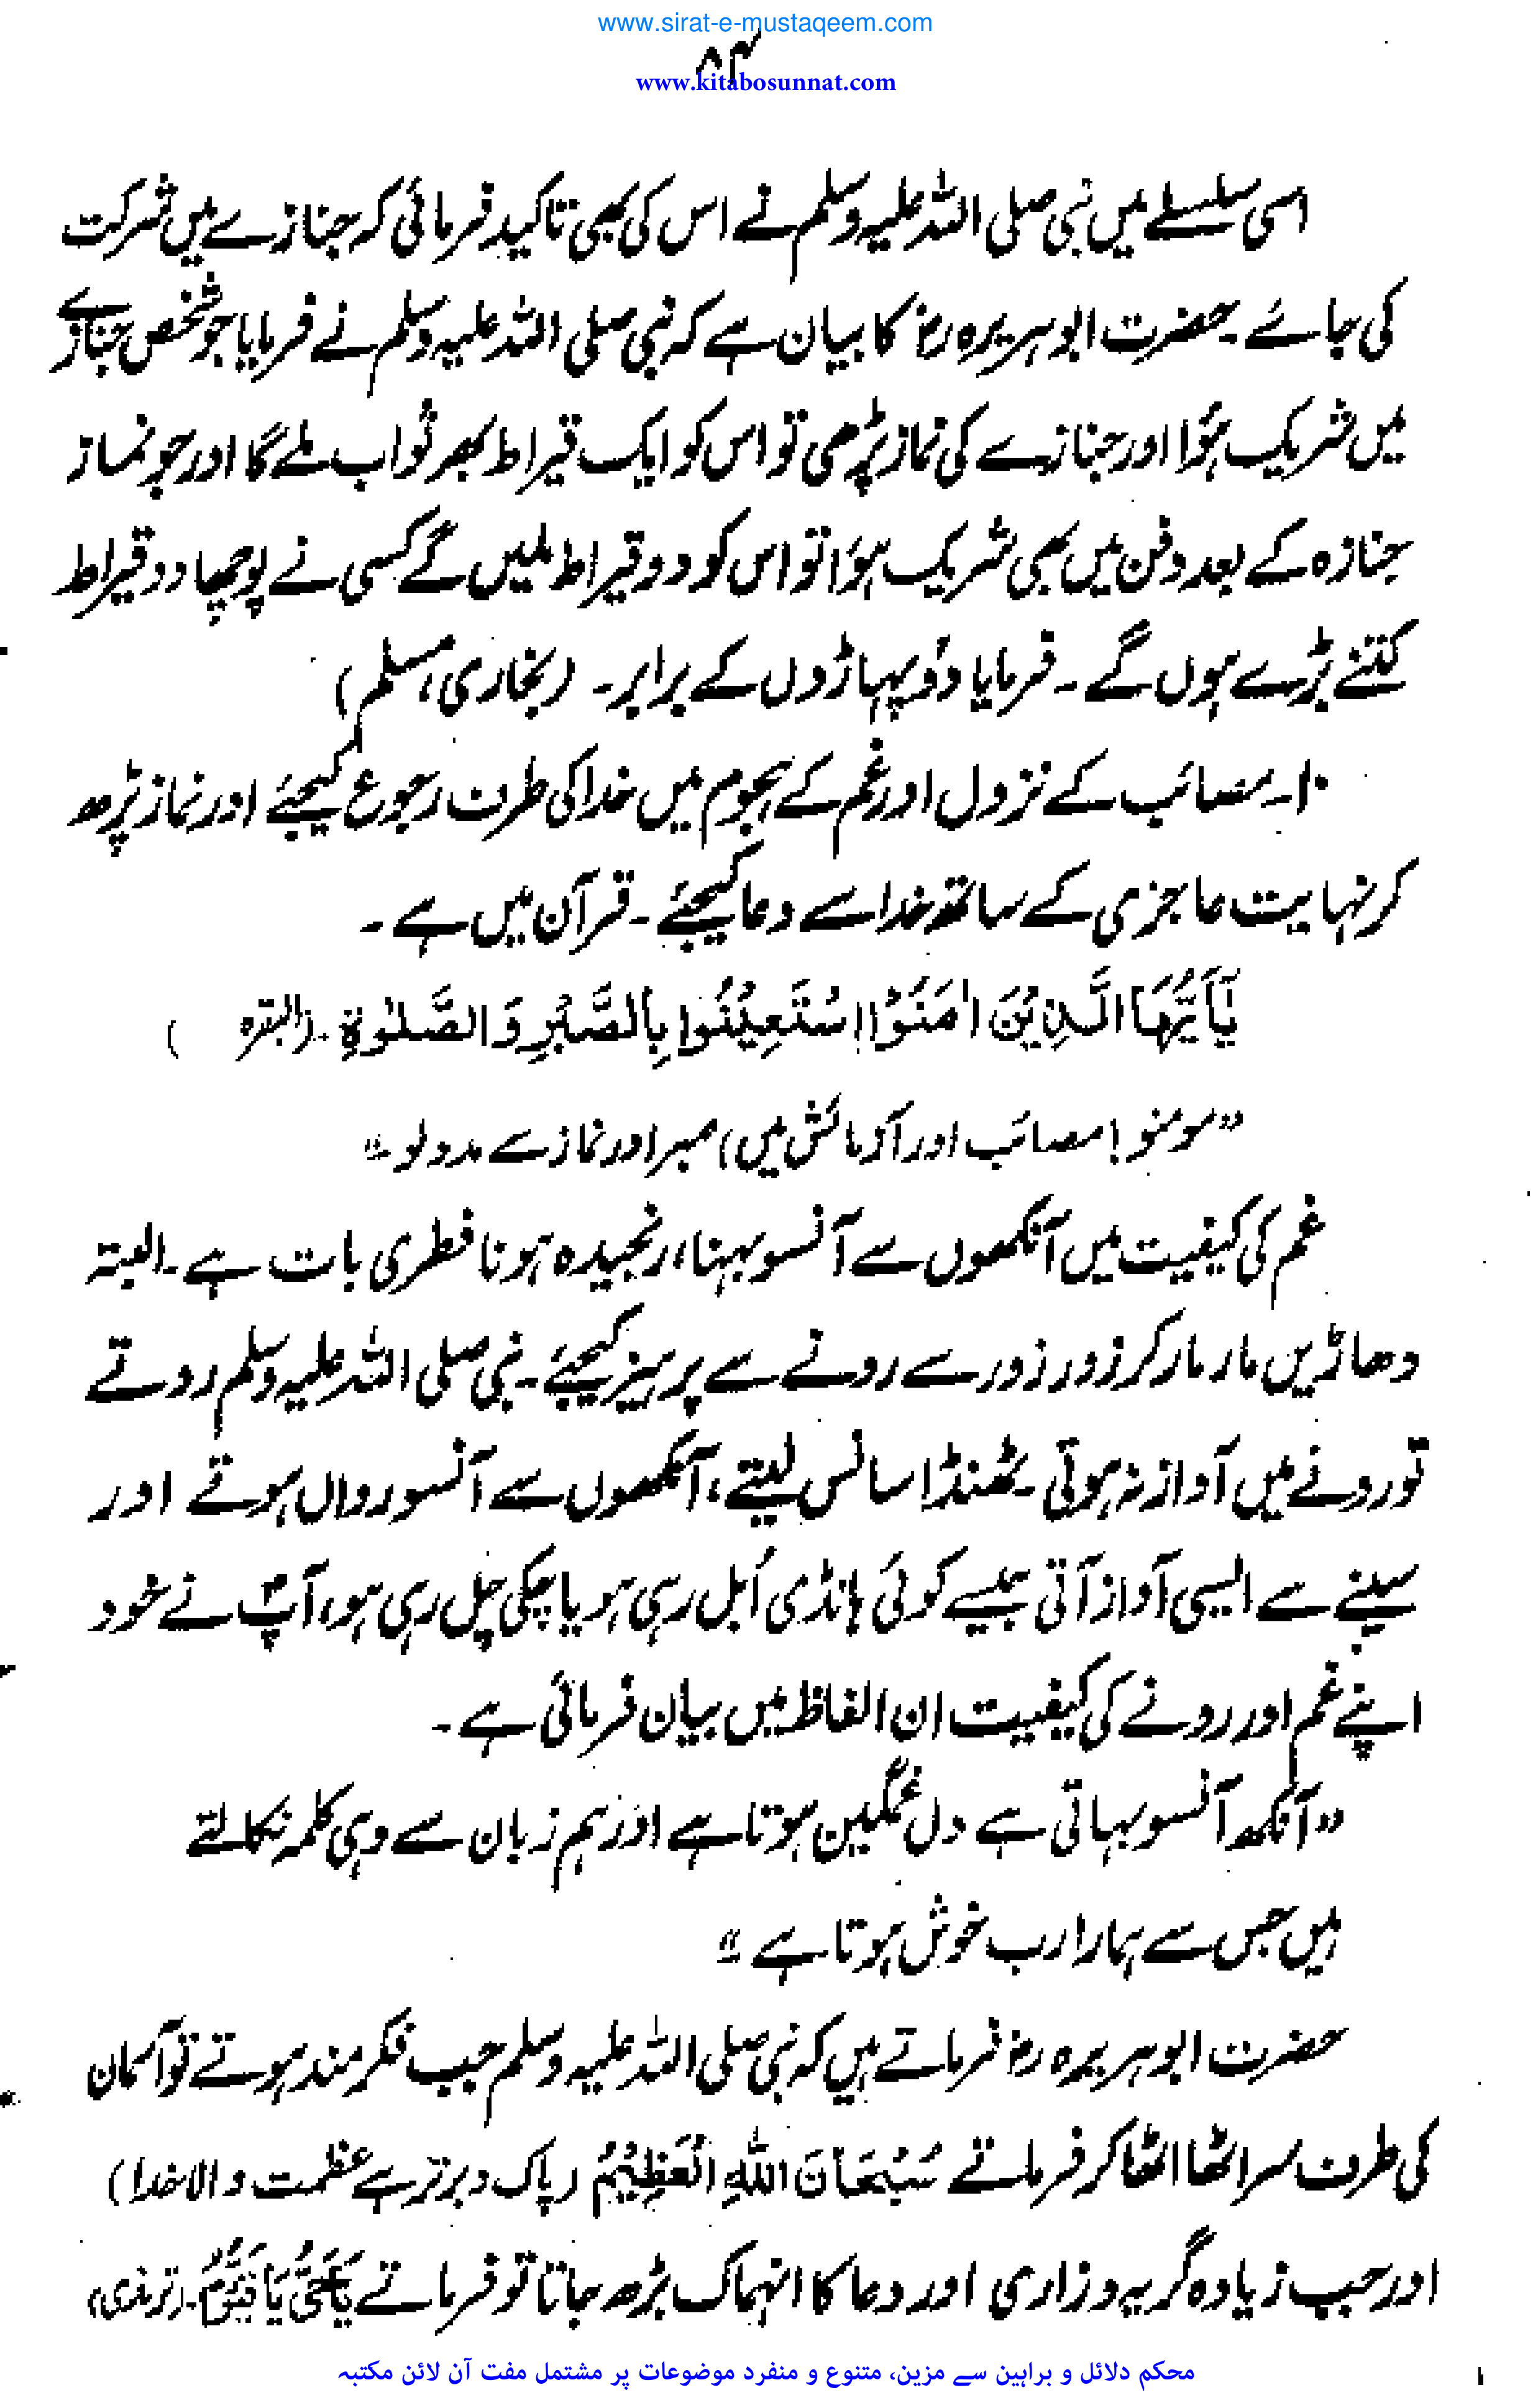 www.sirat-e-mustaqeem.com
۸۴
www.kitabosunnat.com
اسی سلسلے میں نبی صلی اللہ علیہ وسلم نے اس کی بھی تاکید فرمائی کہ جنازے میں شرکت
کی جائے۔ حضرت ابو ہریرہ رض کا بیان ہے کہ نبی صلی اللہ علیہ وسلم نے فرمایا جو شخص جنازے
میں شریک ہؤا اور جنازے کی نماز پڑھی تو اس کو ایک قیراط بھر ثواب ملے گا اور جو نماز
جنازہ کے بعد دفن میں بھی شریک ہؤا تو اس کو دو قیراط ملیں گے کسی نے پوچھا دو قیراط
کتنے بڑے ہوں گے۔ فرمایا دو پہاڑوں کے برابر۔ (بخاری، مسلم)
۱۰۔ مصائب کے نزول اور غم کے ہجوم میں خدا کی طرف رجوع کیجئے اور نماز پڑھ
کر نہایت عاجزی کے ساتھ خدا سے دعا کیجئے۔ قرآن میں ہے۔
يٰۤاَيُّهَا الَّذِيْنَ اٰمَنُوا اسْتَعِيْنُوْا بِالصَّبْرِ وَالصَّلٰوةِ۔ (البقرہ )
”مومنو! مصائب اور آزمائش میں) صبر اور نماز سے مدد لو۔“
غم کی کیفیت میں آنکھوں سے آنسو بہنا، رنجیدہ ہونا فطری بات ہے۔ البتہ
دھاڑیں مار مار کر زور زور سے رونے سے پرہیز کیجئے۔ نبی صلی اللہ علیہ وسلم روتے
تو رونے میں آواز نہ ہوتی۔ ٹھنڈا سانس لیتے، آنکھوں سے آنسو رواں ہوتے اور
سینے سے ایسی آواز آتی جیسے کوئی ہانڈی اُبل رہی ہو یا چکی چل رہی ہو، آپؐ نے خود
اپنے غم اور رونے کی کیفیت ان الفاظ میں بیان فرمائی ہے۔
”آنکھ آنسو بہاتی ہے دل غمگین ہوتا ہے اور ہم زبان سے وہی کلمہ نکالتے
ہیں جس سے ہمارا رب خوش ہوتا ہے۔“
حضرت ابو ہریرہ رض فرماتے ہیں کہ نبی صلی اللہ علیہ وسلم جب فکر مند ہوتے تو آسمان
کی طرف سر اٹھا اٹھا کر فرماتے سُبْحَانَ اللّٰهِ الْعَظِيْمُ (پاک و برتر ہے عظمت والا خدا)
اور جب زیادہ گریہ و زاری اور دعا کا انہماک بڑھ جاتا تو فرماتے يَا حَيُّ يَا قَيُّوْمُ۔ (ترمذی)
محکم دلائل و براہین سے مزین، متنوع و منفرد موضوعات پر مشتمل مفت آن لائن مکتبہ